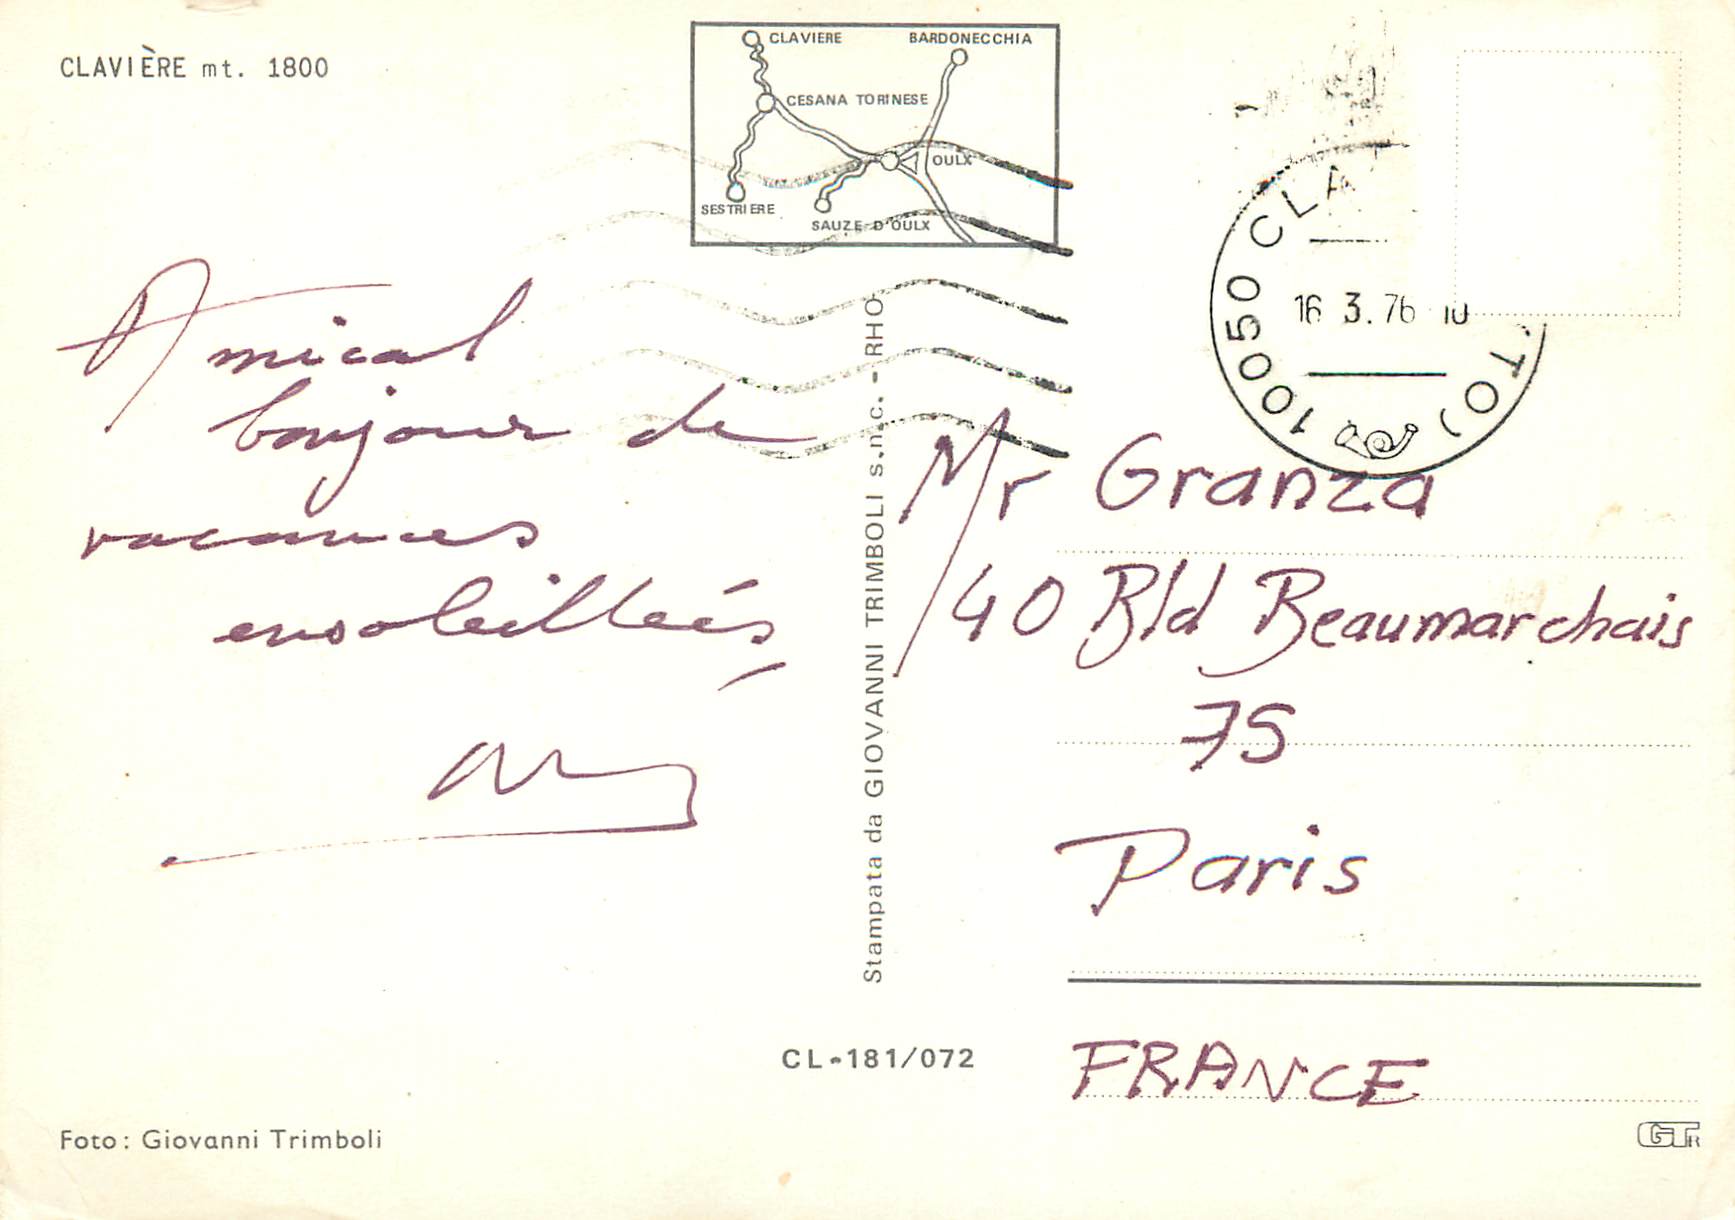 CLAVIÈRE mt. 1800
CLAVIERE
BARDONECCHIA
CESANA TORINESE
OULX
SESTRIERE
SAUZE D'OULX
10050 CLA
TO)
16 3.76
Amical
bonjour de
vacances
ensoleillées
Stampata da GIOVANNI TRIMBOLI s.n.c. - RHO
Mr Granza
40 Bld Beaumarchais
75
Paris
FRANCE
CL-181/072
Foto: Giovanni Trimboli
GTR